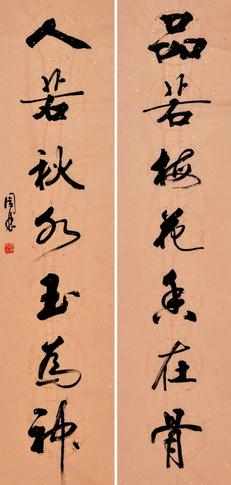 品若梅花香在骨
人若秋水玉為神